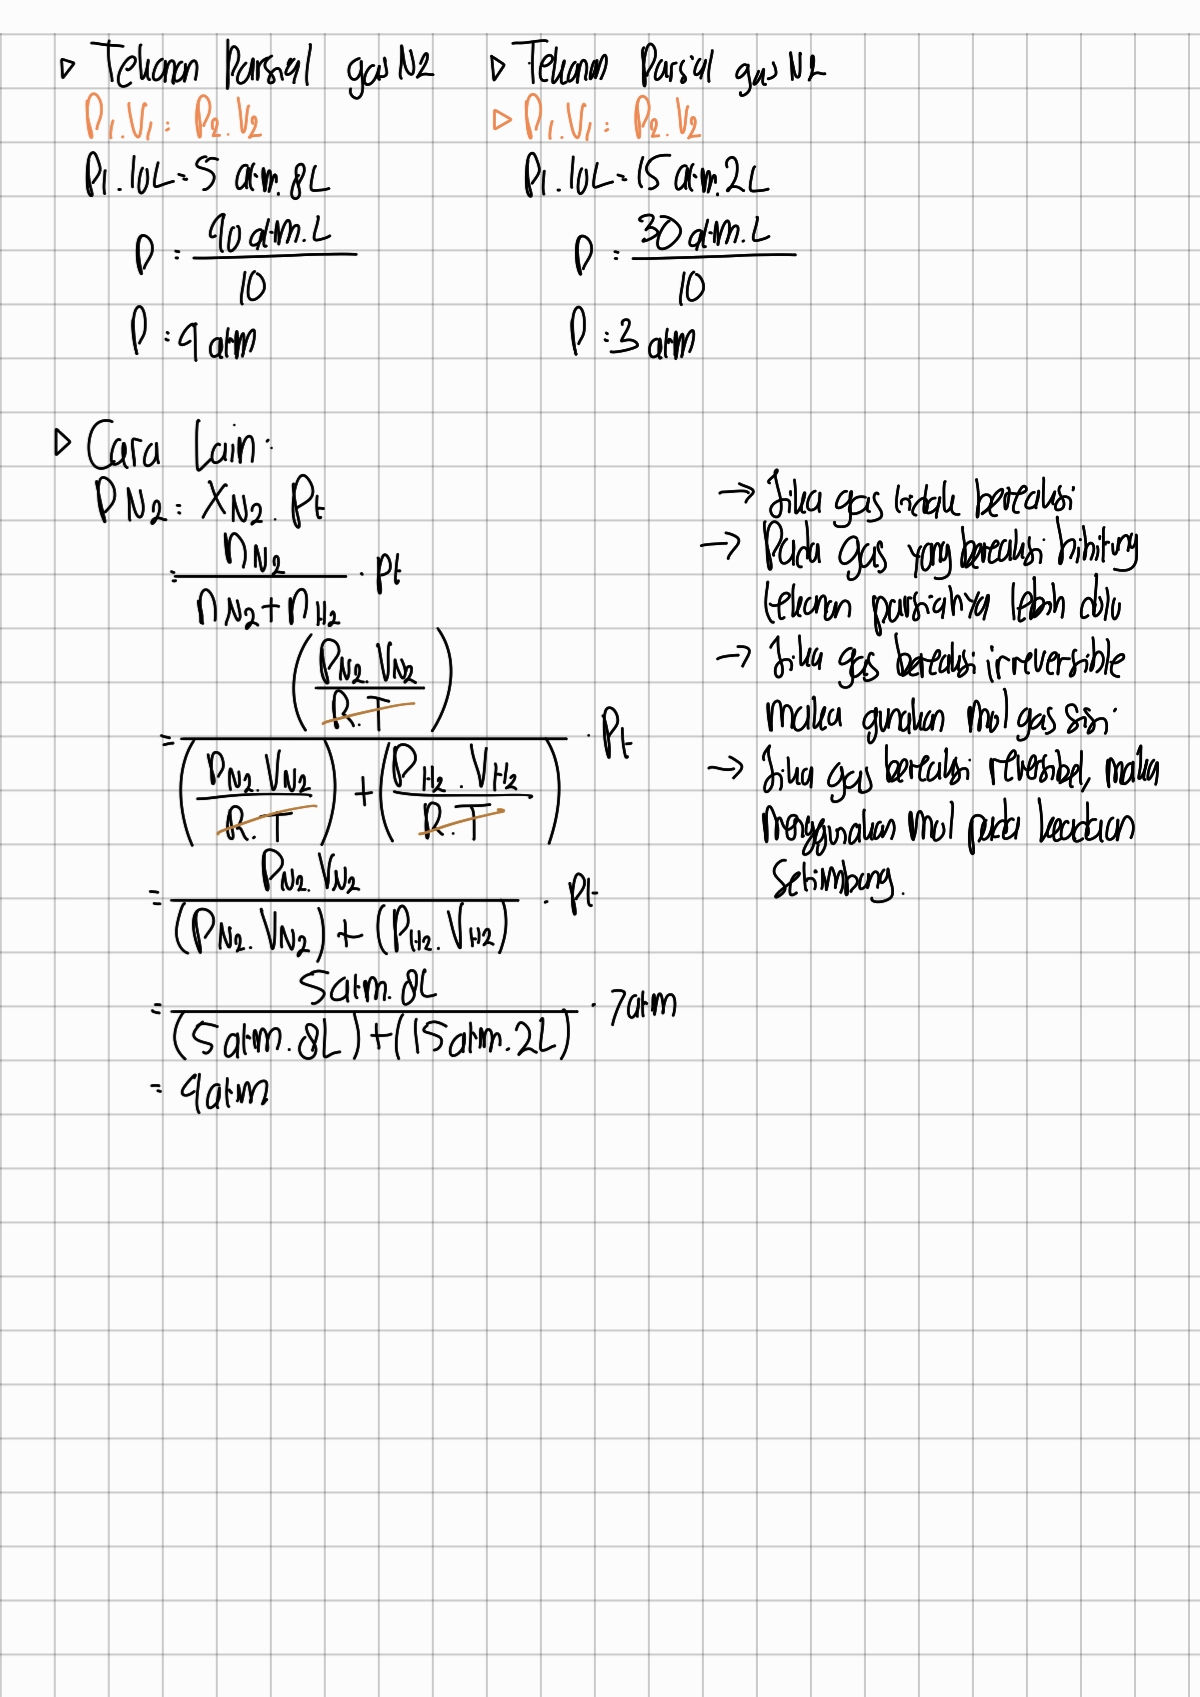 ▷ Tekanan Parsial gas N2
P1.V1 = P2.V2
P1.10L = 5 atm.8L
P = 40 atm.L / 10
P = 4 atm
▷ Tekanan Parsial gas N2
▷ P1.V1 = P2.V2
P1.10L = 15 atm.2L
P = 30 atm.L / 10
P = 3 atm
▷ Cara Lain:
P N2 = X N2 . Pt
= n N2 / n N2 + n H2 . Pt
= (P N2 . V N2 / R.T) / (P N2 . V N2 / R.T) + (P H2 . V H2 / R.T) . Pt
= P N2 . V N2 / (P N2 . V N2) + (P H2 . V H2) . Pt
= 5 atm.8L / (5 atm.8L) + (15 atm.2L) . 7 atm
= 4 atm
→ Jika gas tidak bereaksi
→ Pada gas yang bereaksi hihitung
tekanan parsialnya lebih dolu
→ Jika gas bereaksi irreversible
maka gunakan mol gas sisi
→ Jika gas bereaksi reversibel, maka
menggunakan mol pada keadaan
Setimbang.